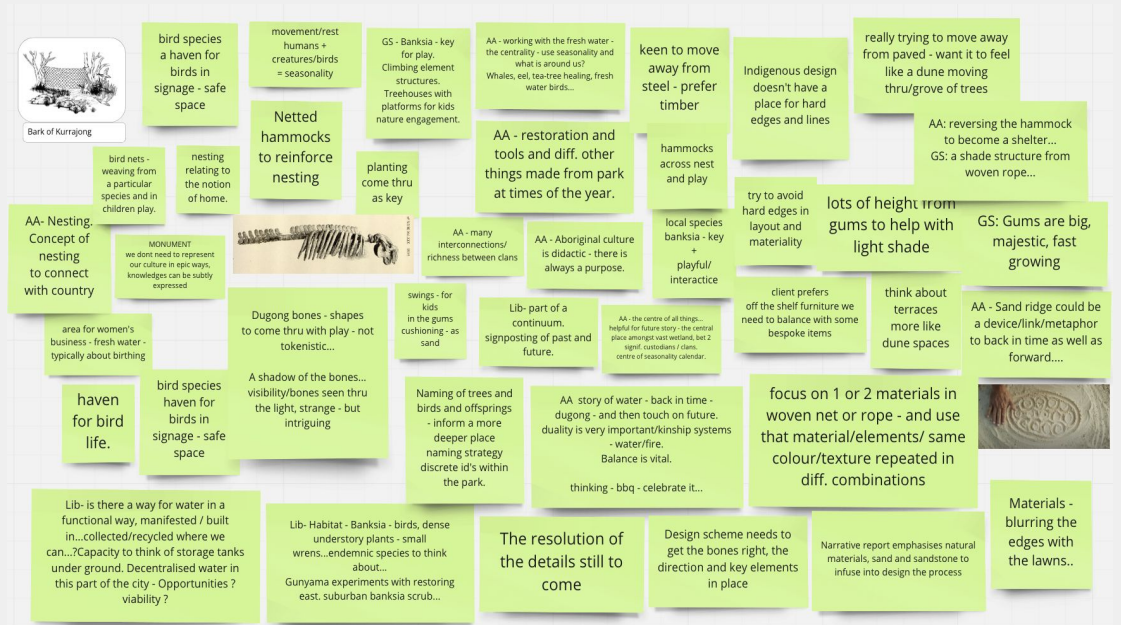 Bark of Kurrajong
bird species
a haven for
birds in
signage - safe
space
movement/rest
humans +
creatures/birds
= seasonality
GS - Banksia - key
for play.
Climbing element
structures.
Treehouses with
platforms for kids
nature engagement.
AA - working with the fresh water -
the centrality - use seasonality and
what is around us?
Whales, eel, tea-tree healing, fresh
water birds...
keen to move
away from
steel - prefer
timber
Indigenous design
doesn't have a
place for hard
edges and lines
really trying to move away
from paved - want it to feel
like a dune moving
thru/grove of trees
Netted
hammocks
to reinforce
nesting
AA - restoration and
tools and diff. other
things made from park
at times of the year.
hammocks
across nest
and play
AA: reversing the hammock
to become a shelter...
GS: a shade structure from
woven rope...
bird nets -
weaving from
a particular
species and in
children play.
nesting
relating to
the notion
of home.
planting
come thru
as key
try to avoid
hard edges in
layout and
materiality
lots of height from
gums to help with
light shade
GS: Gums are big,
majestic, fast
growing
AA- Nesting.
Concept of
nesting
to connect
with country
MONUMENT
we dont need to represent
our culture in epic ways,
knowledges can be subtly
expressed
AA - many
interconnections/
richness between clans
AA - Aboriginal culture
is didactic - there is
always a purpose.
local species
banksia - key
+
playful/
interactice
area for women's
business - fresh water -
typically about birthing
Dugong bones - shapes
to come thru with play - not
tokenistic...
A shadow of the bones...
visibility/bones seen thru
the light, strange - but
intriguing
swings - for
kids
in the gums
cushioning - as
sand
Lib- part of a
continuum.
signposting of past and
future.
AA - the centre of all things...
helpful for future story - the central
place amongst vast wetland, bet 2
signif. custodians / clans.
centre of seasonality calendar.
client prefers
off the shelf furniture we
need to balance with some
bespoke items
think about
terraces
more like
dune spaces
AA - Sand ridge could be
a device/link/metaphor
to back in time as well as
forward....
haven
for bird
life.
bird species
haven for
birds in
signage - safe
space
Naming of trees and
birds and offsprings
- inform a more
deeper place
naming strategy
discrete id's within
the park.
AA story of water - back in time -
dugong - and then touch on future.
duality is very important/kinship systems
- water/fire.
Balance is vital.
thinking - bbq - celebrate it...
focus on 1 or 2 materials in
woven net or rope - and use
that material/elements/ same
colour/texture repeated in
diff. combinations
Lib- is there a way for water in a
functional way, manifested / built
in...collected/recycled where we
can...?Capacity to think of storage tanks
under ground. Decentralised water in
this part of the city - Opportunities ?
viability ?
Lib- Habitat - Banksia - birds, dense
understory plants - small
wrens...endemnic species to think
about...
Gunyama experiments with restoring
east. suburban banksia scrub...
The resolution of
the details still to
come
Design scheme needs to
get the bones right, the
direction and key elements
in place
Narrative report emphasises natural
materials, sand and sandstone to
infuse into design the process
Materials -
blurring the
edges with
the lawns..